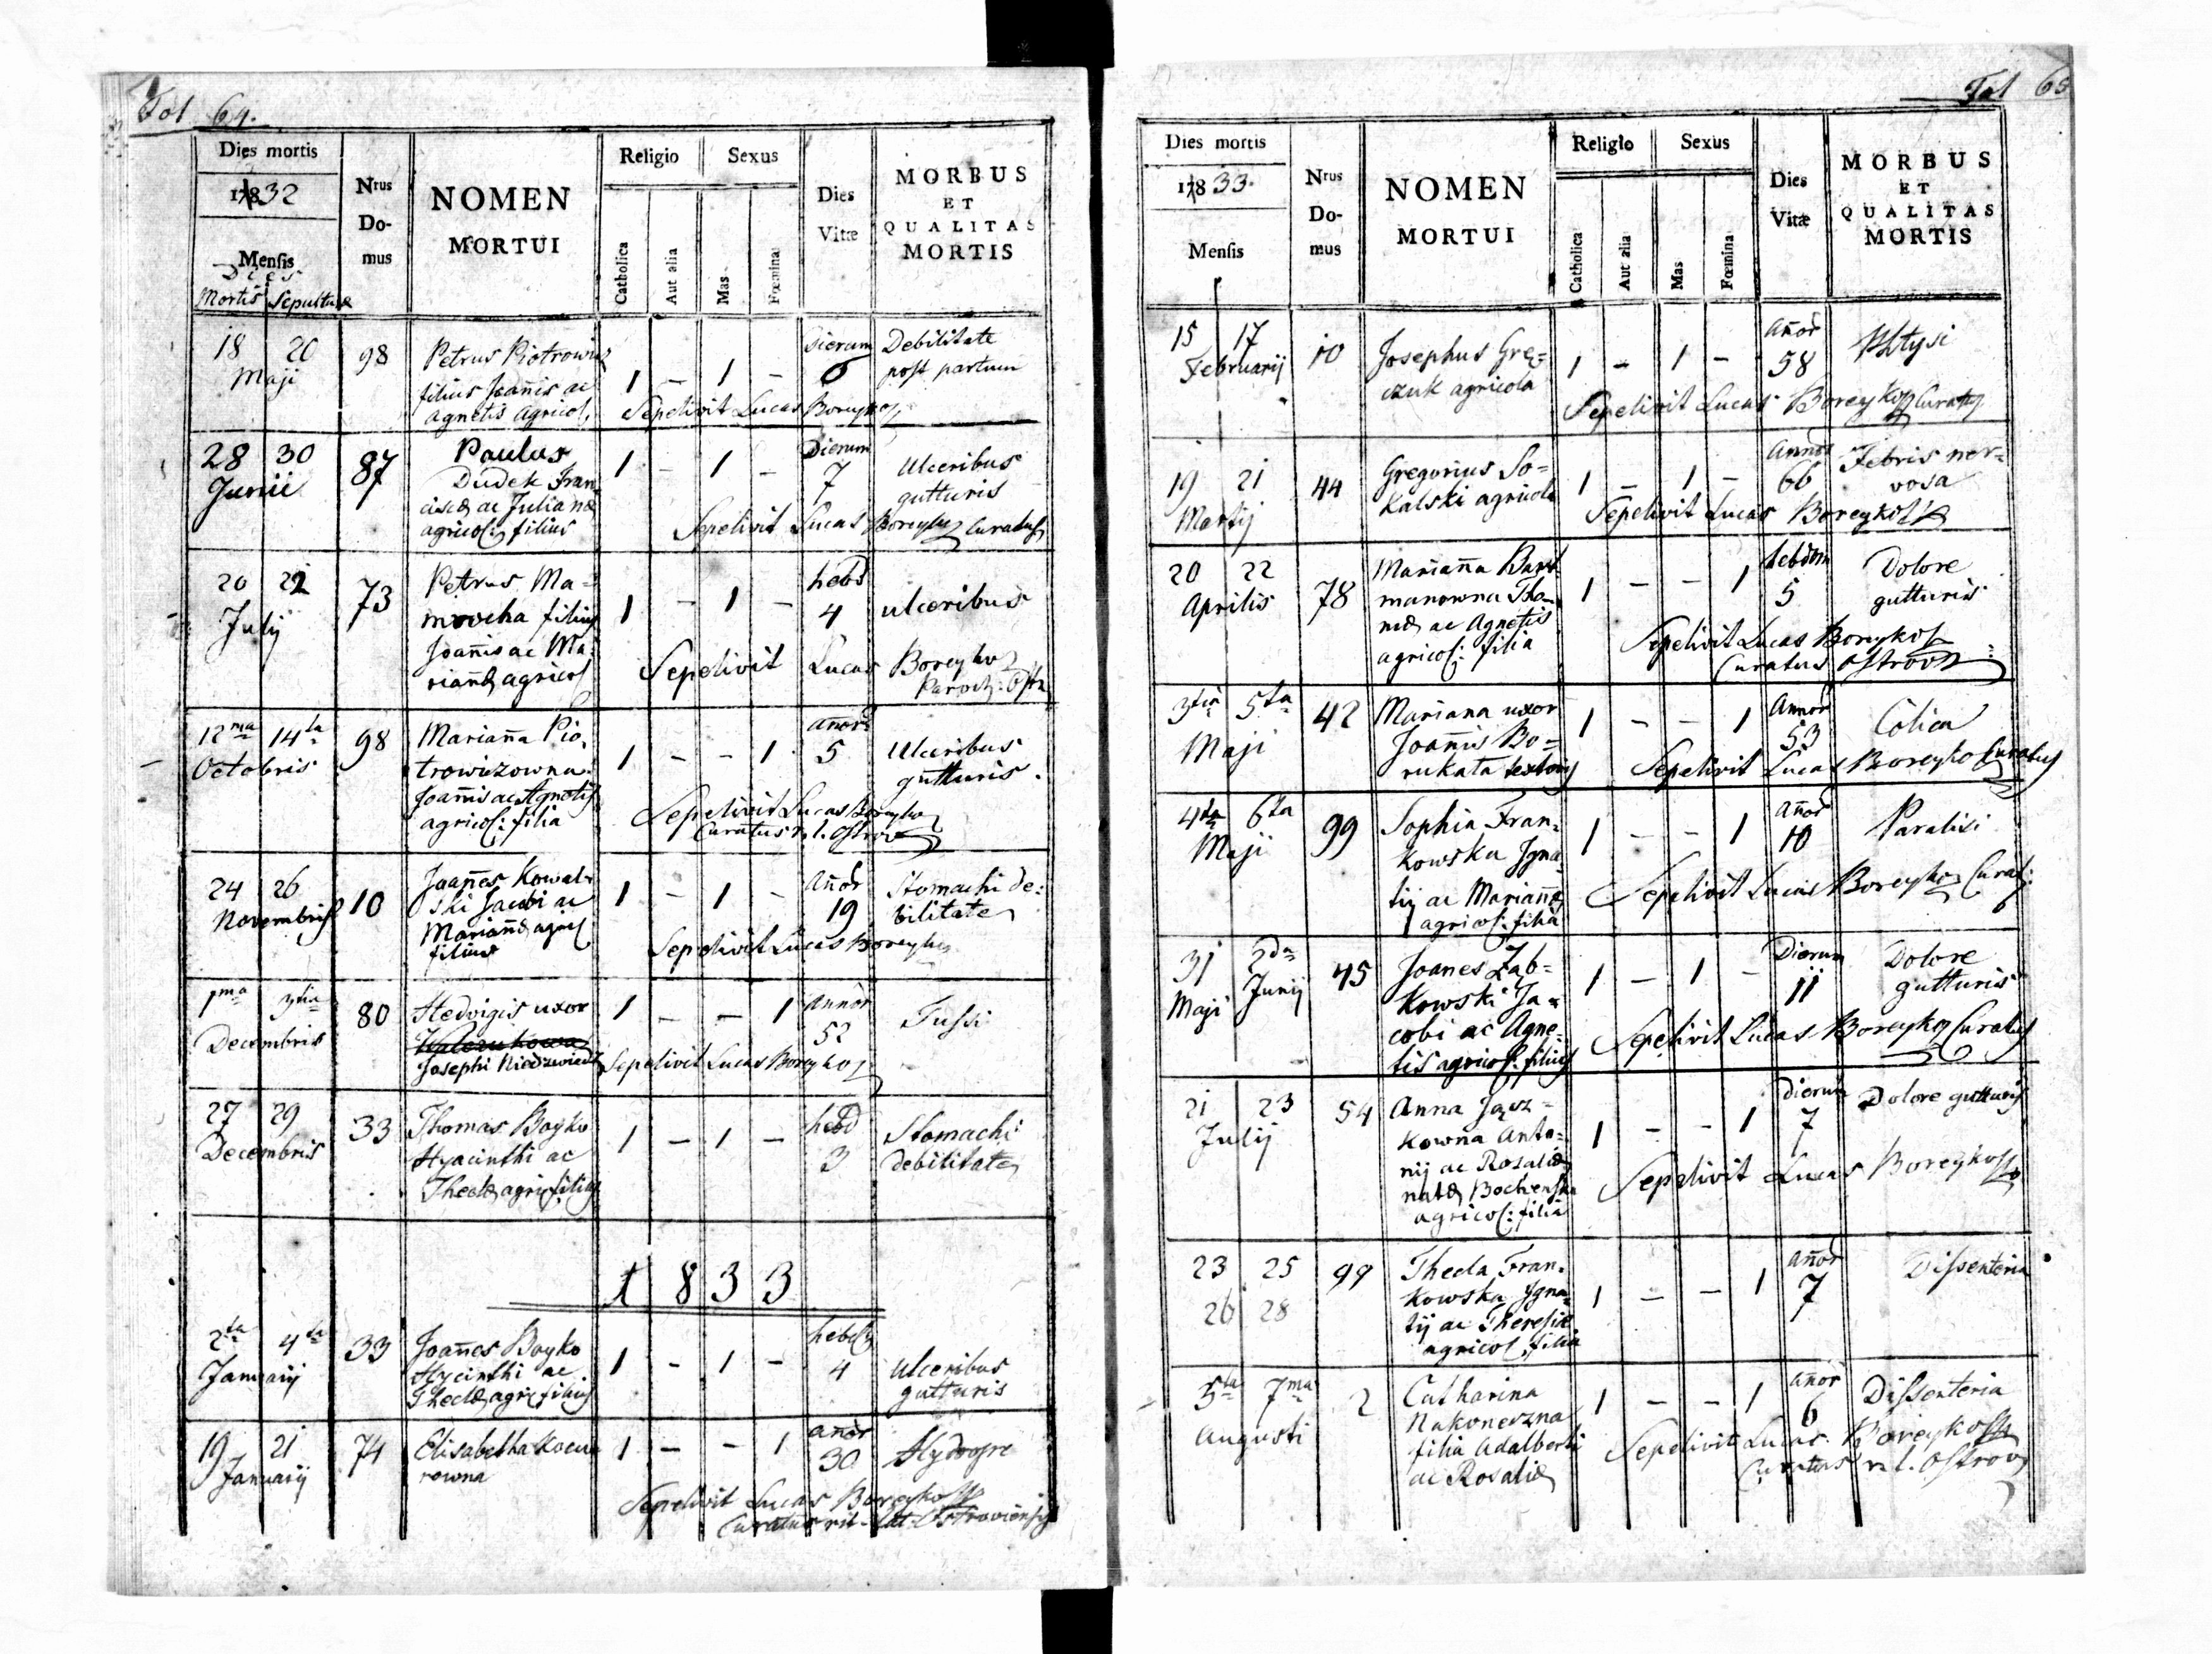 Fol 64.
Dies mortis
1832
Mensis
Dies
Mortis Sepulturæ
Nrus
Do-
mus
NOMEN
MORTUI
Religio
Catholica
Aut alia
Sexus
Mas
Fœmina
Dies
Vitæ
MORBUS
ET
QUALITAS
MORTIS
18 20
Maji
98
Petrus Piotrowicz
filius Joañis ac
agnetis agricol.
1 – 1 –
Dierum
6
Debilitate
post partum
Sepelivit Lucas Boreyko
28 30
Junii
87
Paulus
Dudek Fran
ciscæ ac Julianæ
agricol: filius
1 – 1 –
Dierum
7
Ulceribus
gutturis
Sepelivit Lucas Boreyko Curatus
20 22
Julij
73
Petrus Ma=
mrocha filius
Joañis ac Ma:
riañæ agricol
1 – 1 –
hebd
4
ulceribus
Sepelivit Lucas Boreyko
12ma 14ta
Octobris
98
Mariaña Pio,
trowiczowna
Joañis ac Agnetis
agricol: filia
1 – – 1
añor
5
Ulceribus
gutturis.
Sepelivit Lucas Boreyko
Curatus r. l. Ostrov
24 26
Novembris
10
Joañes Kowal=
ski Jacobi ac
Mariañæ agric
filius
1 – 1 –
Añor
19
Stomachi de:
bilitate
Sepelivit Lucas Boreyko
1ma 3tia
Decembris
80
Hedvigis uxor
Josephi Niedzwiedz
1 – – 1
Annor
52
Tussi
Sepelivit Lucas Boreyko
27 29
Decembris
33
Thomas Boyko
Hyacinthi ac
Theclæ agric filius
1 – 1 –
hebd
3
Stomachi
debilitate
1833
2da 4ta
Januarij
33
Joañes Boyko
Hycinthi ac
Theclæ agric filius
1 – 1 –
hebd
4
Ulceribus
gutturis
19 21
Januarij
74
Elisabetha Kocu
rowna
1 – – 1
añor
30
Hydrope
Sepelivit Lucas Boreyko
Curatus rit. Lat. Ostroviensis
Fol 65
Dies mortis
1833.
Mensis
Nrus
Do-
mus
NOMEN
MORTUI
Religio
Catholica
Aut alia
Sexus
Mas
Fœmina
Dies
Vitæ
MORBUS
ET
QUALITAS
MORTIS
15 17
Februarij
10
Josephus Grę=
czuk agricola
1 – 1 –
Añor
58
Phtysi
Sepelivit Lucas Boreyko Curatus
19 21
Martij
44
Gregorius So=
kalski agricola
1 – 1 –
Annor
66
Febris ner=
vosa
Sepelivit Lucas Boreyko
20 22
Aprilis
78
Mariaña Bart
manowna Tho=
mæ ac Agnetis
agricol: filia
1 – – 1
hebdom
5
Dolore
gutturis
Sepelivit Lucas Boreyko
Curatus Ostrov
3tia 5ta
Maji
42
Mariana uxor
Joañis Bo=
rukata textoris
1 – – 1
Annor
53
Colica
Sepelivit Lucas Boreyko Curatus
4ta 6ta
Maji
99
Sophia Fran=
kowska Igna
tij ac Mariañæ
agricol: filia
1 – – 1
Añor
10
Paralisi
Sepelivit Lucas Boreyko Curat:
31 2da
Maji Junij
45
Joanes Ząb=
kowski Ja=
cobi ac Agne=
tis agricol: filius
1 – 1 –
Dierum
11
Dolore
gutturis
Sepelivit Lucas Boreyko Curatus
21 23
Julij
54
Anna Jącz=
kowna Anto=
nij ac Rosaliæ
natæ Bochenska
agricol: filia
1 – – 1
Dierum
7
Dolore gutturis
Sepelivit Lucas Boreyko
23 25
26 28
99
Thecla Fran=
kowska Igna=
tij ac Theresiæ
agricol, filia
1 – – 1
añor
7
Dissenteria
5ta 7ma
Augusti
2
Catharina
Nakoneczna
filia Adalberti
ac Rosaliæ
1 – – 1
añor
6
Dissenteria
Sepelivit Lucas Boreyko
Curatus r. l. Ostrov